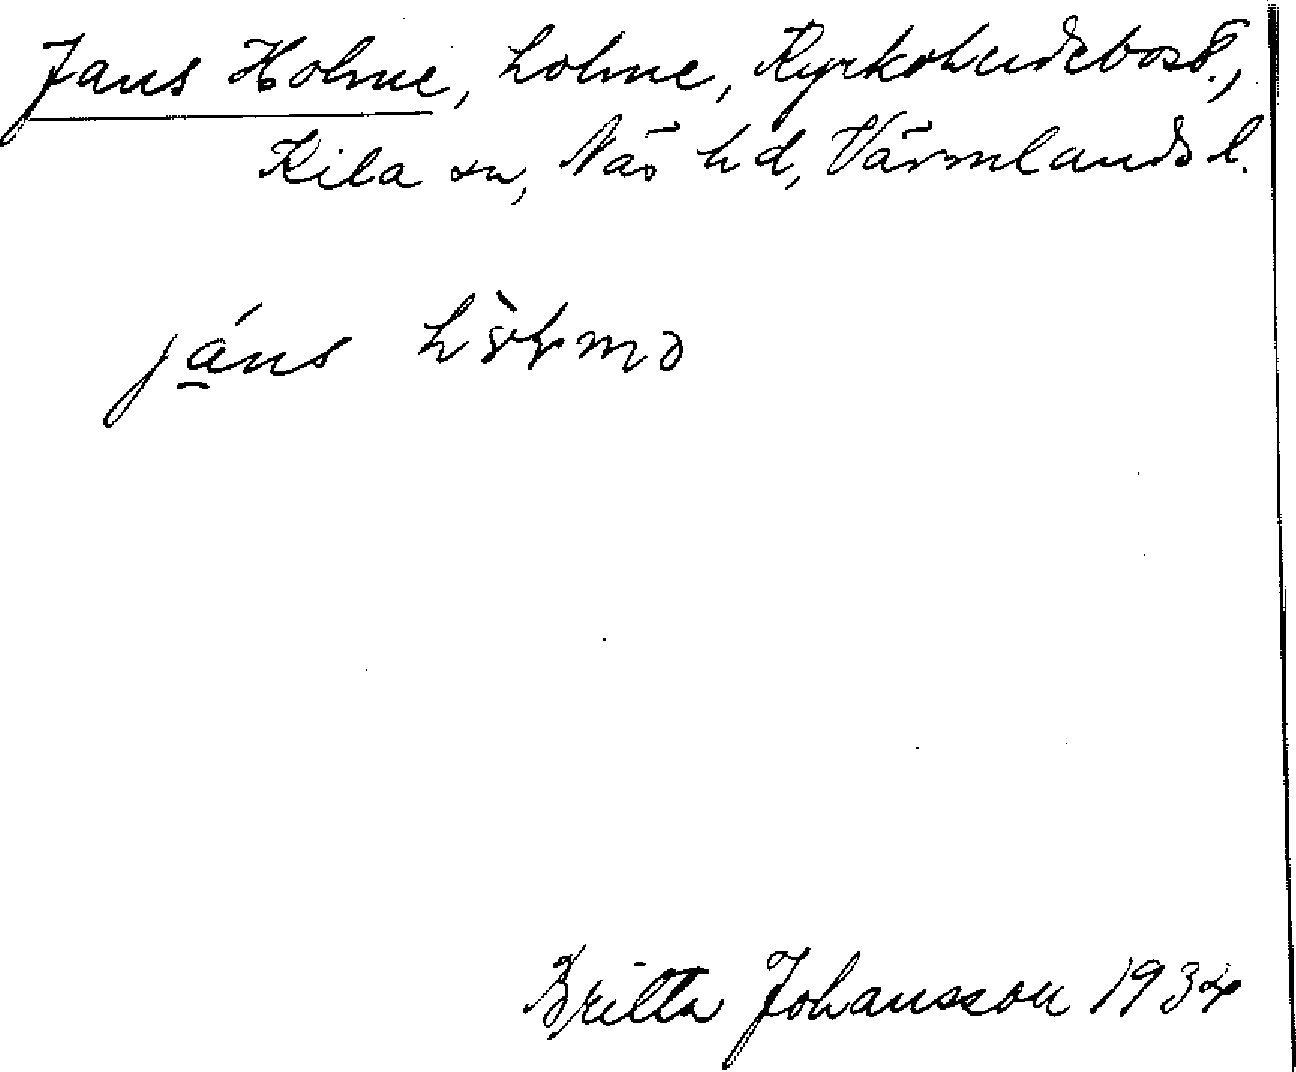 Jans Holme, holme, Kyrkoherdebost.,
Kila sn, Näs hd, Värmlands l.
jáns
Britta Johansson 1934